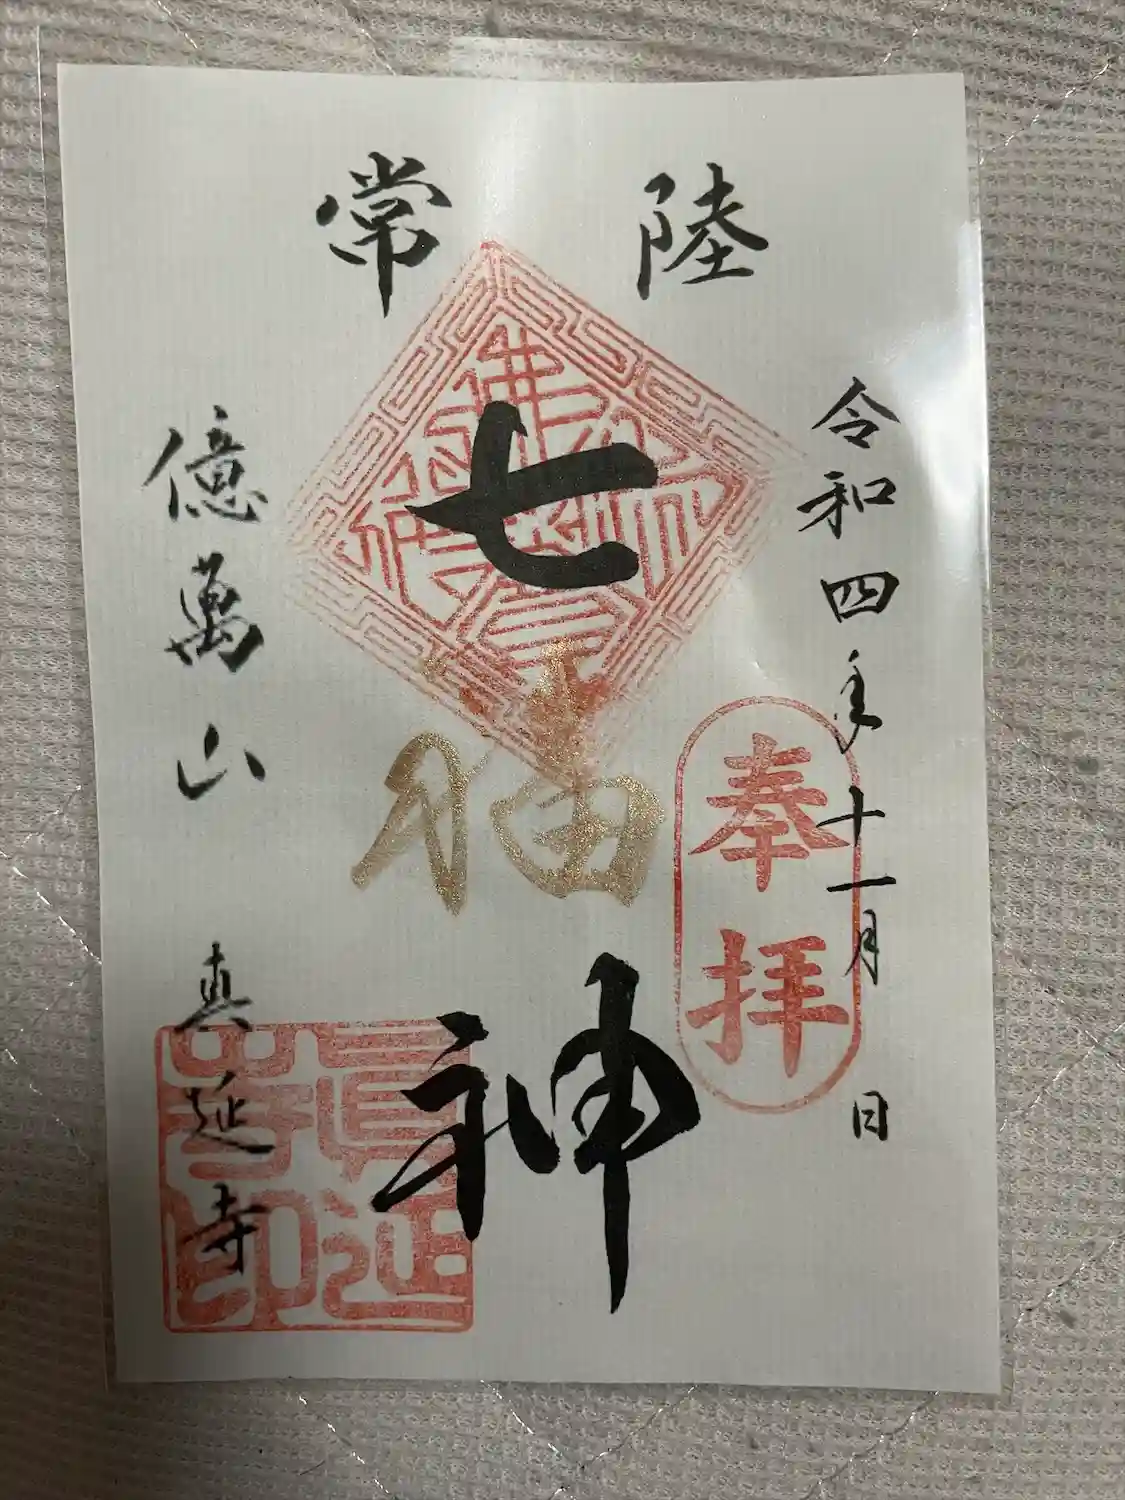 常陸
令和四年十一月 日
奉拝
七福神
億萬山
真延寺
眞延寺印